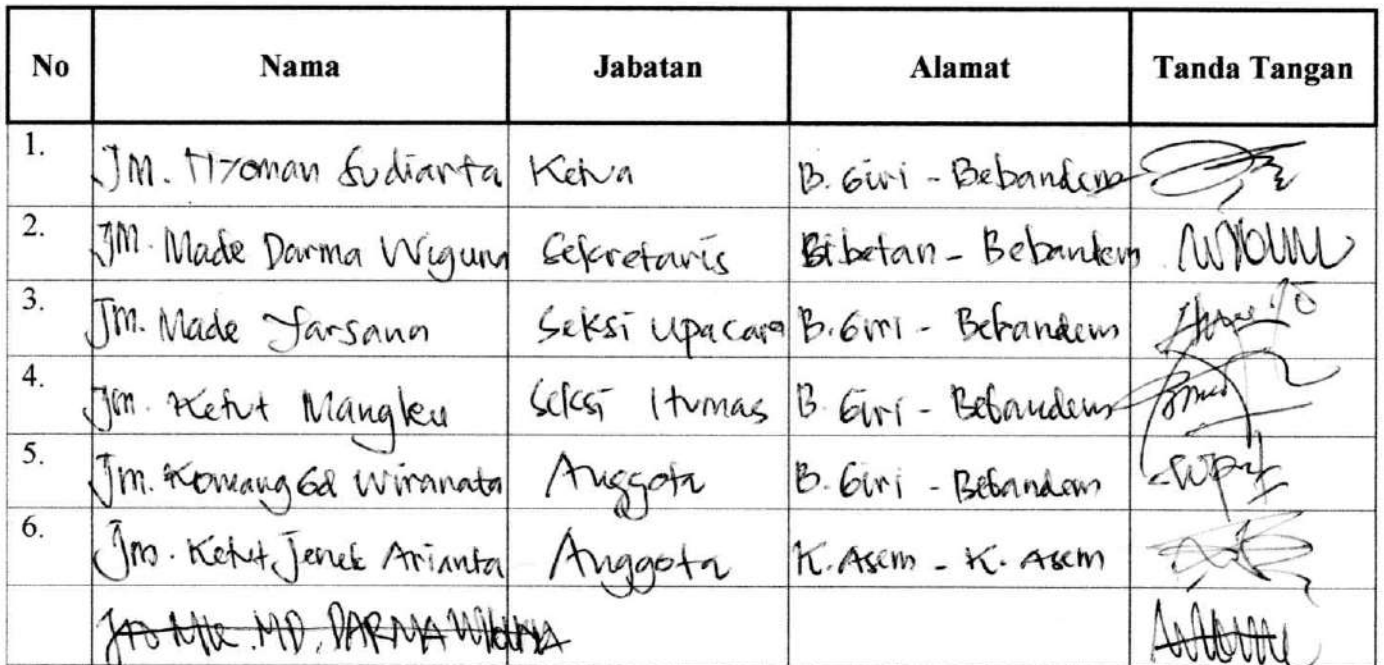 No Nama Jabatan Alamat Tanda Tangan
1. JM. Nyoman Sudiarta Ketua B. Giri - Bebandem
2. JM. Made Darma Wiguna Sekretaris Bibetan - Bebandem
3. Jm. Made Yarsana Seksi Upacara B. Giri - Bebandem
4. Jm. Ketut Mangku Seksi Humas B. Giri - Bebandem
5. Jm. Komang Gd Wiranata Anggota B. Giri - Bebandem
6. Jm. Ketut Jenek Arianta Anggota K. Asem - K. Asem
MD. DARMA WIGUNA